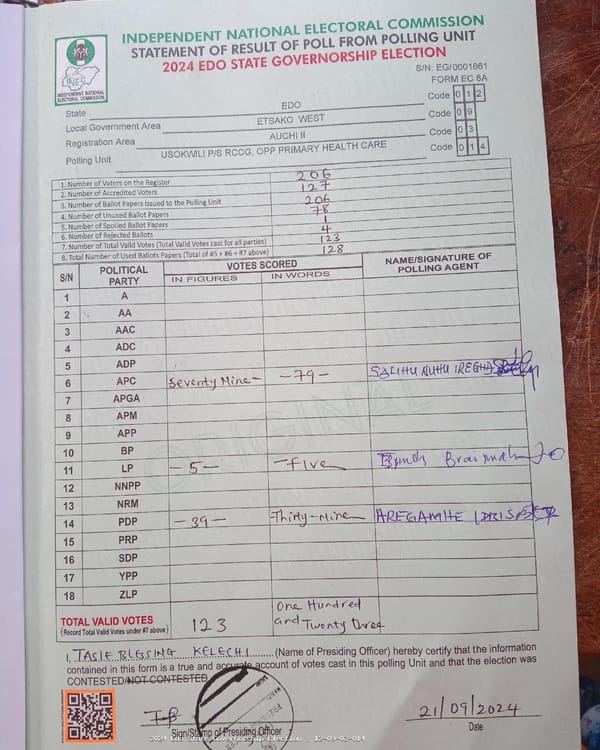 INDEPENDENT NATIONAL ELECTORAL COMMISSION
STATEMENT OF RESULT OF POLL FROM POLLING UNIT
2024 EDO STATE GOVERNORSHIP ELECTION
INEC
INDEPENDENT NATIONAL
ELECTORAL COMMISSION
S/N: EG/0001861
FORM EC 8A
State EDO Code 0 1 2
Local Government Area ETSAKO WEST Code 0 9
Registration Area AUCHI II Code 0 3
Polling Unit USOKWILI P/S RCCG, OPP PRIMARY HEALTH CARE Code 0 1 4
1. Number of Voters on the Register 206
2. Number of Accredited Voters 127
3. Number of Ballot Papers Issued to the Polling Unit 206
4. Number of Unused Ballot Papers 78
5. Number of Spoiled Ballot Papers 1
6. Number of Rejected Ballots 4
7. Number of Total Valid Votes (Total Valid Votes cast for all parties) 123
8. Total Number of Used Ballots Papers (Total of #5 + #6 + #7 above) 128
S/N POLITICAL PARTY VOTES SCORED NAME/SIGNATURE OF POLLING AGENT
IN FIGURES IN WORDS
1 A
2 AA
3 AAC
4 ADC
5 ADP
6 APC Seventy Nine - -79- SALIHU NUHU
7 APGA
8 APM
9 APP
10 BP
11 LP -5- -Five
12 NNPP
13 NRM
14 PDP -39- -Thirty-Nine AREGAMHE
15 PRP
16 SDP
17 YPP
18 ZLP
ORIGINAL
TOTAL VALID VOTES 123 One Hundred and Twenty Three
(Record Total Valid Votes under #7 above)
I, TASIE BLESSING KELECHI (Name of Presiding Officer) hereby certify that the information
contained in this form is a true and accurate account of votes cast in this polling Unit and that the election was
CONTESTED/NOT CONTESTED
21/09/2024
Sign/Stamp of Presiding Officer Date
2024 Edo State Governorship Election - 12-09-03-014